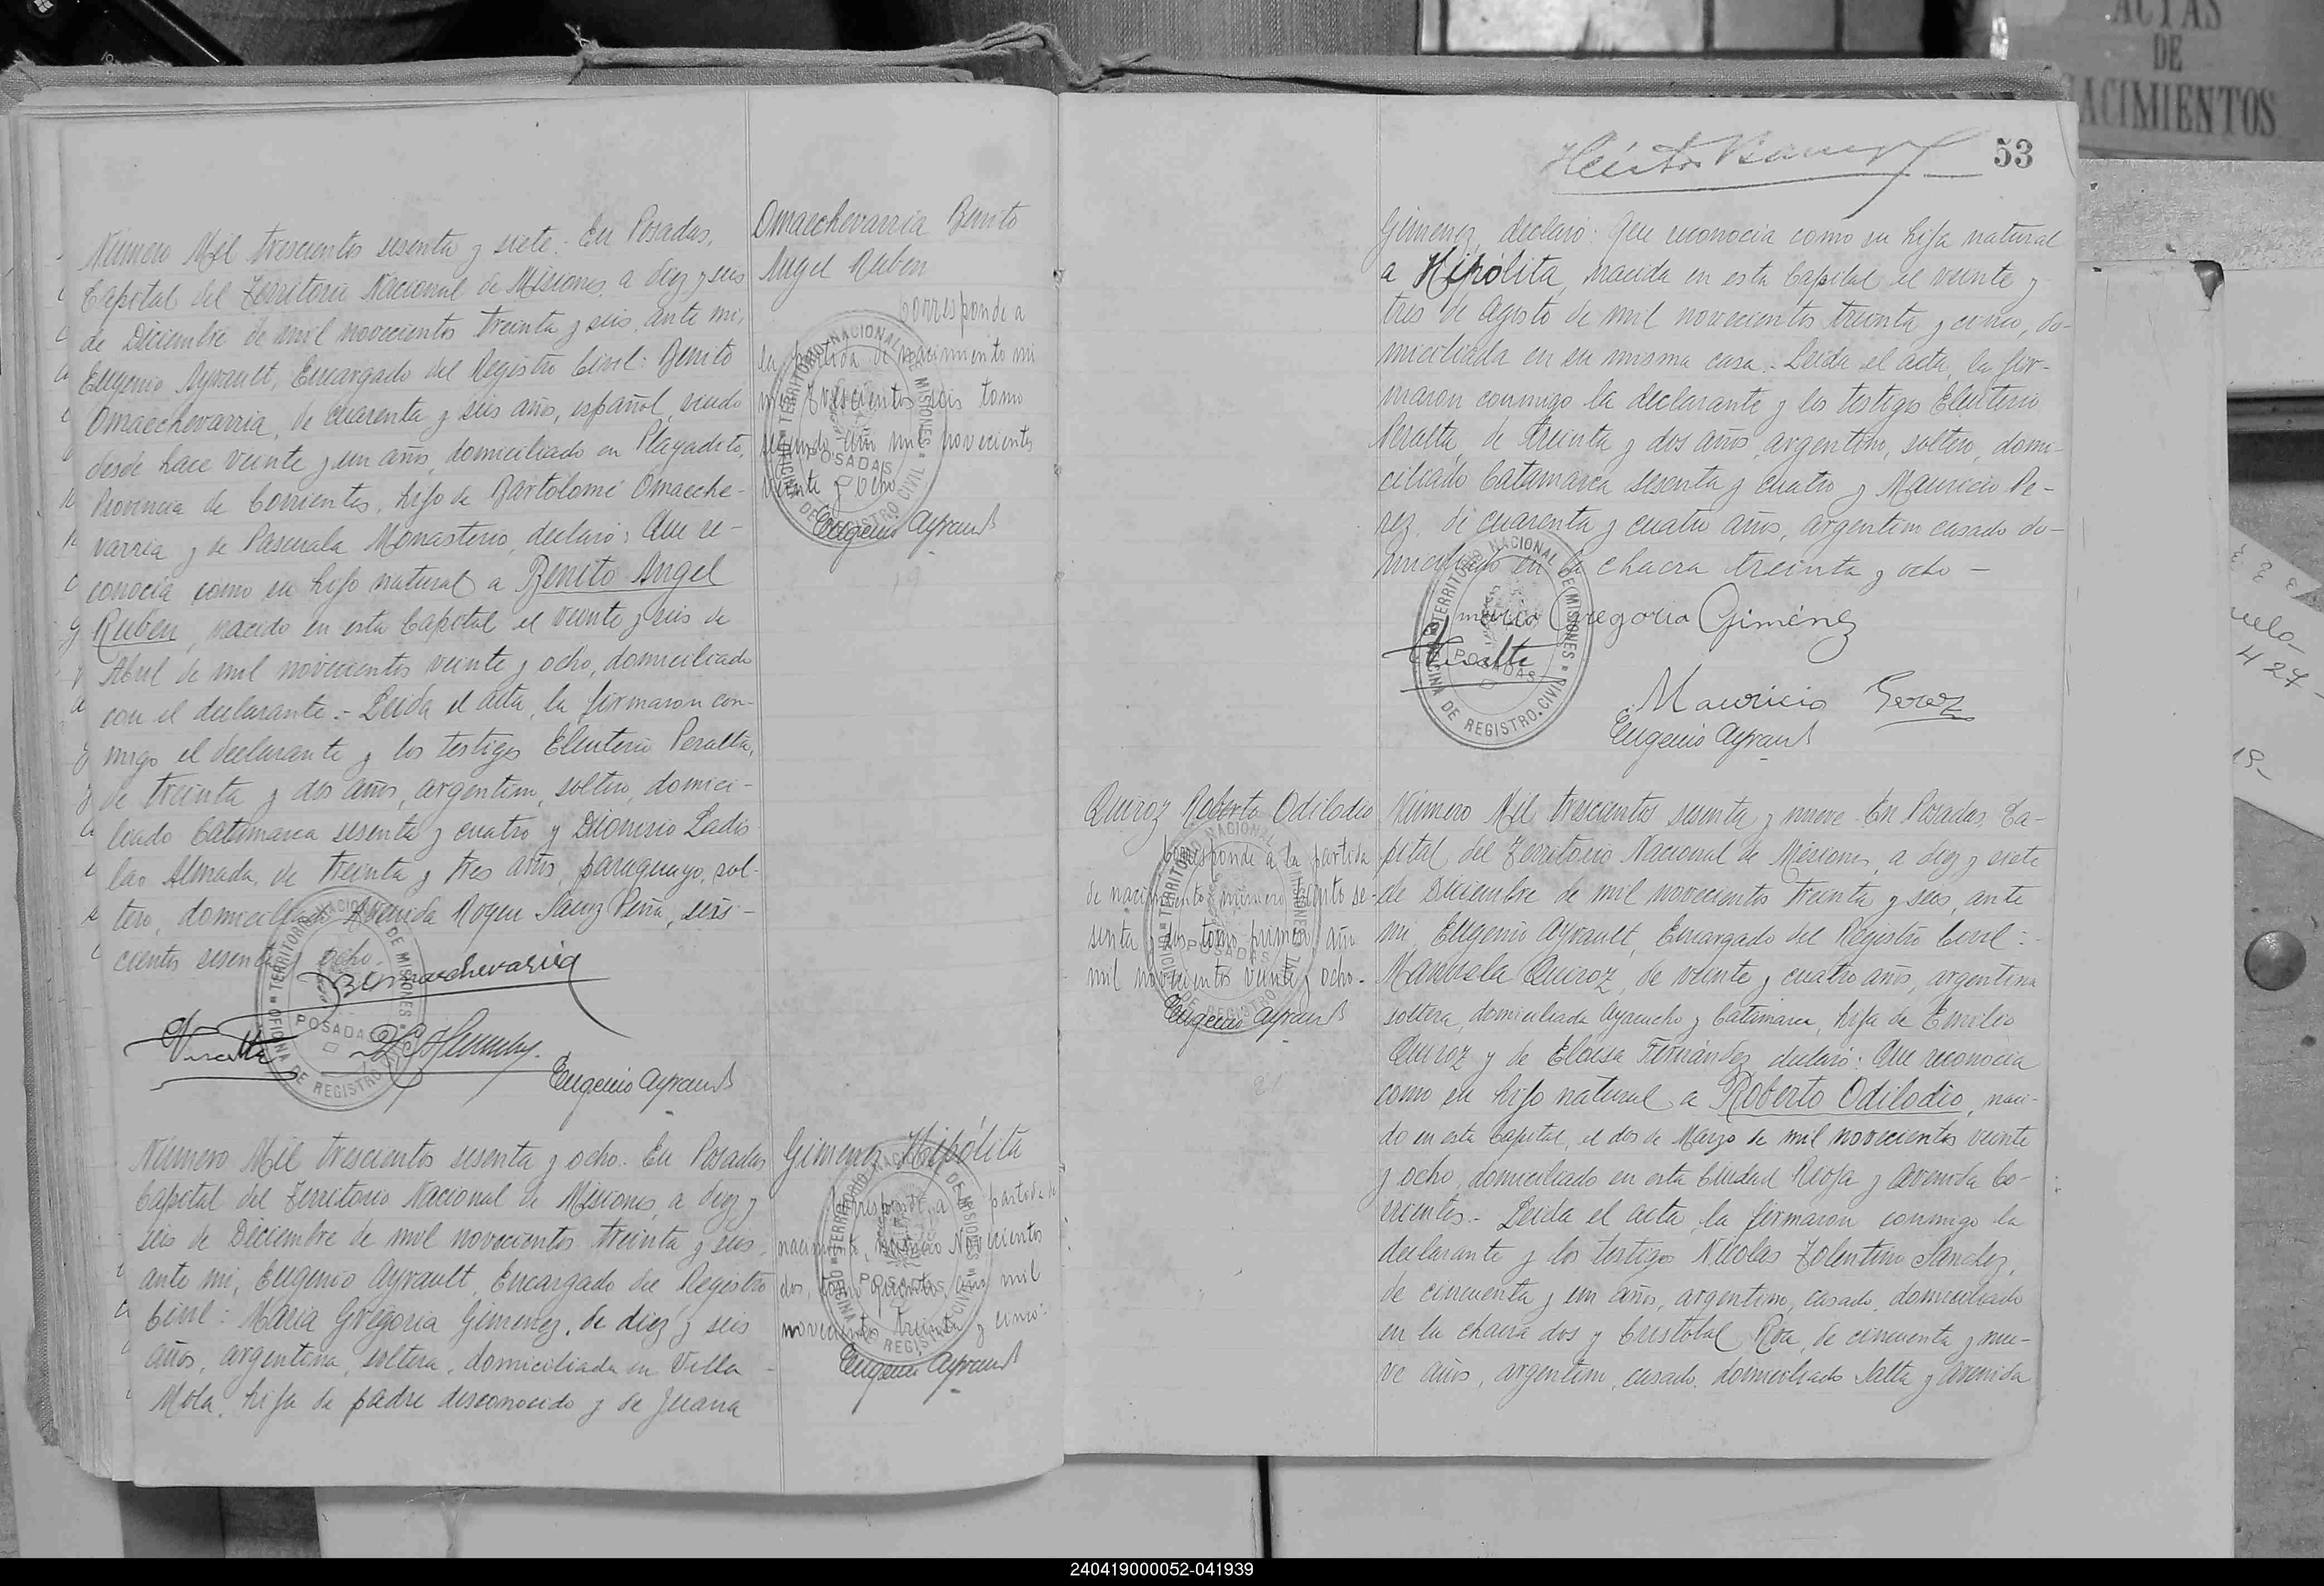 ACTAS
DE
NACIMIENTOS
Número Mil trescientos sesenta y siete. En Posadas,
Capital del Territorio Nacional de Misiones, a diez y seis
de Diciembre de mil novecientos treinta y seis, ante mi,
Eugenio Ayrault, Encargado del Registro Civil: Benito
Omaechevarria, de cuarenta y seis años, español, viudo
desde hace veinte y un años, domiciliado en Playadito,
Provincia de Corrientes, hijo de Bartolomé Omaeche-
varria y de Pascuala Monasterio, declaró: Que re-
conocia como su hijo natural a Benito Angel
Ruben, nacido en esta Capital el veinte y seis de
Abril de mil novecientos veinte y ocho, domiciliado
con el declarante.- Leida el acta, la firmaron con-
migo el declarante y los testigos Eleuterio Peralta,
de treinta y dos años, argentino, soltero, domici-
liado Catamarca sesenta y cuatro y Dionisio Ladis
lao Almada, de treinta y tres años, paraguayo, sol-
tero, domiciliado Avenida Roque Saenz Peña, seis-
cientos sesenta y ocho.-
B Omaechevarria
Eugenio Ayrault
TERRITORIO NACIONAL DE MISIONES
POSADAS
OFICINA DE REGISTRO CIVIL
Omaechevarria Benito
Angel Ruben
Corresponde a
la partida de nacimiento nú
mero trescientos seis tomo
segundo año mil novecientos
veinte y ocho
Eugenio Ayrault
TERRITORIO NACIONAL DE MISIONES
POSADAS
OFICINA DE REGISTRO CIVIL
19
Número Mil trescientos sesenta y ocho. En Posadas
Capital del Territorio Nacional de Misiones, a diez y
seis de Diciembre de mil novecientos treinta y seis,
ante mi, Eugenio Ayrault, Encargado del Registro
Civil: Maria Gregoria Gimenez, de diez y seis
años, argentina, soltera, domiciliada en Villa
Mola, hija de padre desconocido y de Juana
Gimenez Hipólita
Corresponde a la partida de
nacimiento, número Novecientos
dos, tomo quinto, año mil
novecientos treinta y cinco.-
Eugenio Ayrault
TERRITORIO NACIONAL DE MISIONES
POSADAS
OFICINA DE REGISTRO CIVIL
53
Gimenez, declaró: Que reconocia como su hija natural
a Hipólita, nacida en esta Capital el veinte y
tres de Agosto de mil novecientos treinta y cinco, do-
miciliada en su misma casa.- Leida el acta, la fir-
maron conmigo la declarante y los testigos Eleuterio
Peralta, de treinta y dos años, argentino, soltero, domi-
ciliado Catamarca sesenta y cuatro y Mauricio Pe-
rez, de cuarenta y cuatro años, argentino casado do-
miciliado en la chacra treinta y ocho -
maria Gregoria Giménez
Mauricio Perez
Eugenio Ayrault
TERRITORIO NACIONAL DE MISIONES
POSADAS
OFICINA DE REGISTRO CIVIL
Quiroz Roberto Odilodio
Corresponde a la partida
de nacimiento número ciento se-
senta y dos, tomo primero, año
mil novecientos veinte y ocho.-
Eugenio Ayrault
TERRITORIO NACIONAL DE MISIONES
POSADAS
OFICINA DE REGISTRO CIVIL
Número Mil trescientos sesenta y nueve. En Posadas, Ca-
pital del Territorio Nacional de Misiones, a diez y siete
de Diciembre de mil novecientos treinta y seis, ante
mi, Eugenio Ayrault, Encargado del Registro Civil:-
Manuela Quiroz, de veinte y cuatro años, argentina
soltera, domiciliada Ayacucho y Catamarca, hija de Emilio
Quiroz y de Eloisa Fernández, declaró: Que reconocia
como su hijo natural a Roberto Odilodio, naci-
do en esta Capital, el dos de Marzo de mil novecientos veinte
y ocho, domiciliado en esta Ciudad Rioja y Avenida Co-
rrientes.- Leida el acta, la firmaron conmigo la
declarante y los testigos Nicolas Tolentino Sanchez,
de cincuenta y un años, argentino, casado, domiciliado
en la chacra dos y Cristobal Roa, de cincuenta y nue-
ve años, argentino, casado, domiciliado Salta y Avenida
427
19-
240419000052-041939